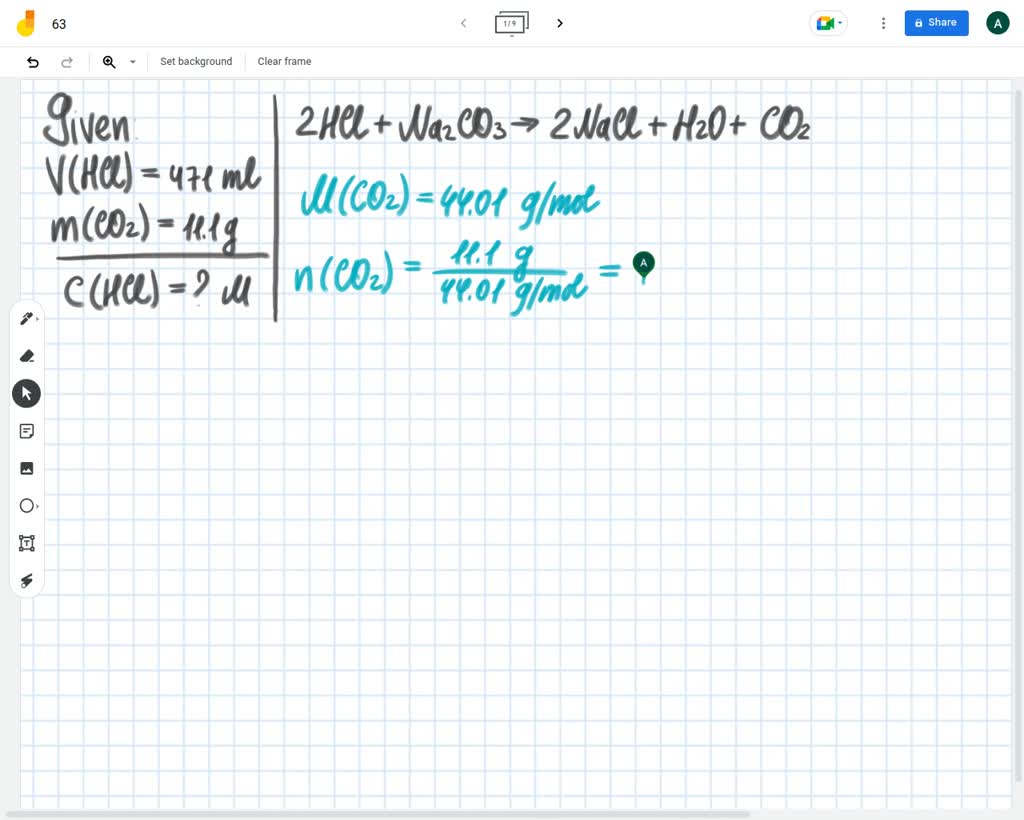 63
1/9
Share
A
Set background
Clear frame
Given:
V(HCl) = 471 ml
m(CO2) = 11.1 g
C(HCl) = ? M
2HCl + Na2CO3 → 2NaCl + H2O + CO2
M(CO2) = 44.01 g/mol
n(CO2) = 11.1 g / 44.01 g/mol =
A
T